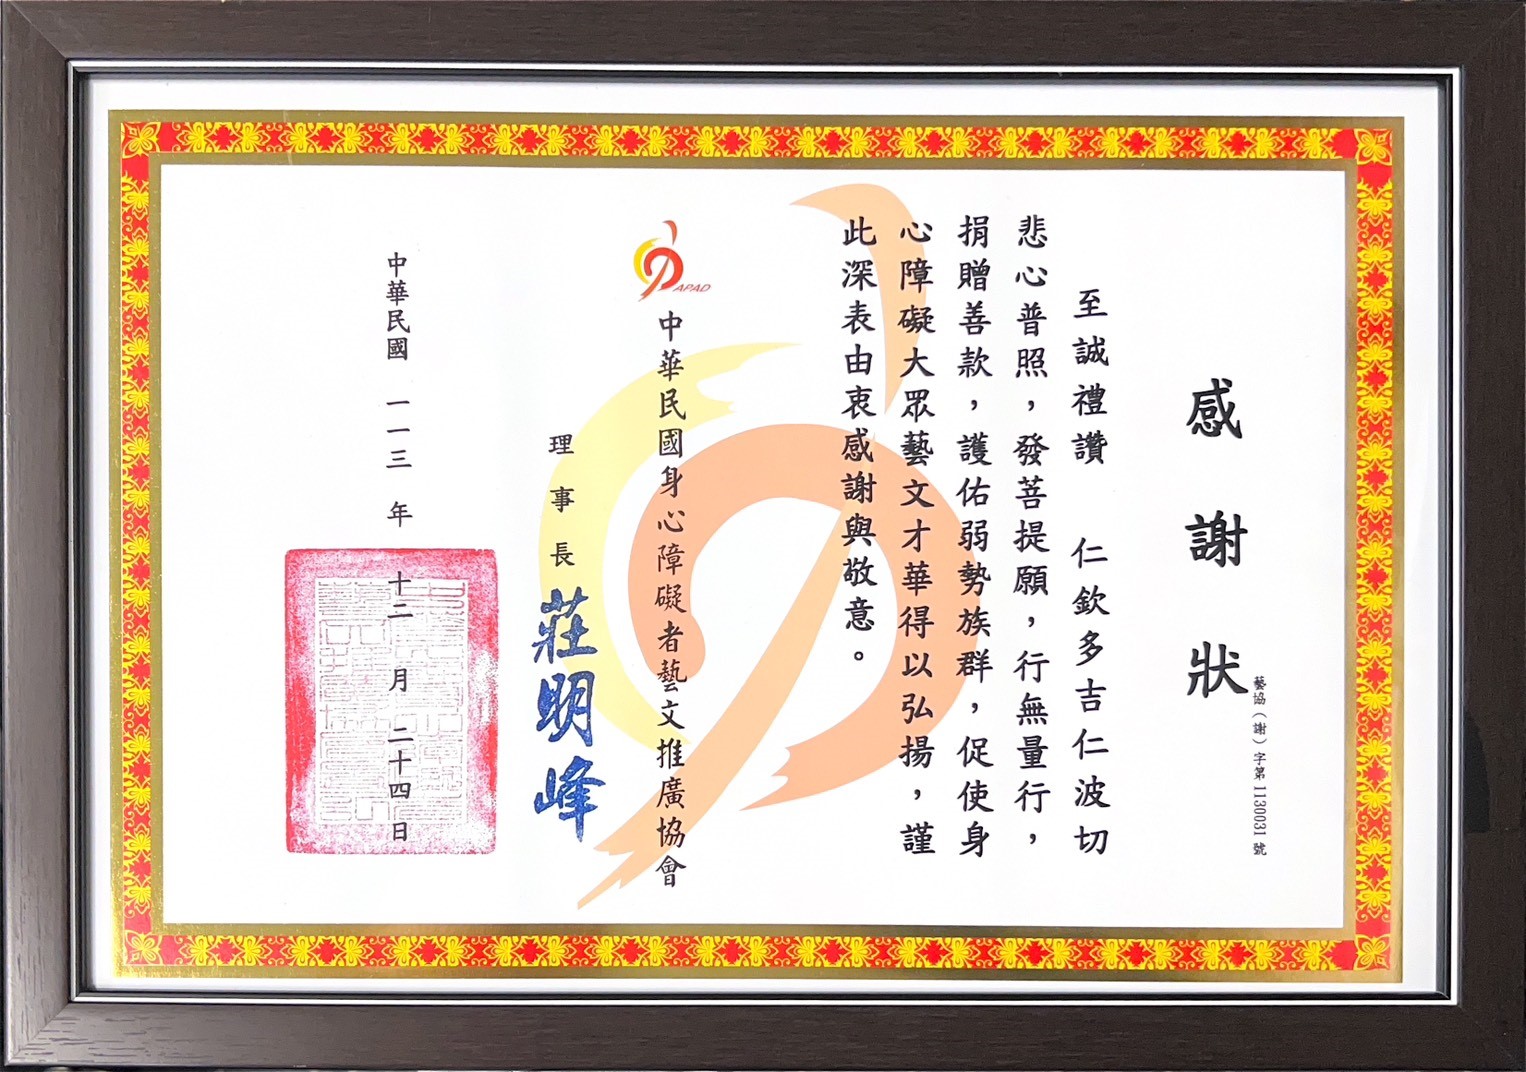 感謝狀
藝協（謝）字第1130031號
至誠禮讚　仁欽多吉仁波切
悲心普照，發菩提願，行無量行，
捐贈善款，護佑弱勢族群，促使身
心障礙大眾藝文才華得以弘揚，謹
此深表由衷感謝與敬意。
APAD
中華民國身心障礙者藝文推廣協會
理事長 莊明峰
中華民國 一一三 年 十二 月 二十四 日